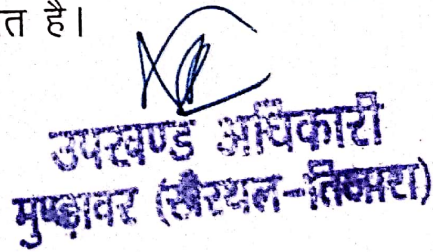 त है।
उपखण्ड अधिकारी
मुण्डावर (खैरथल-तिजारा)